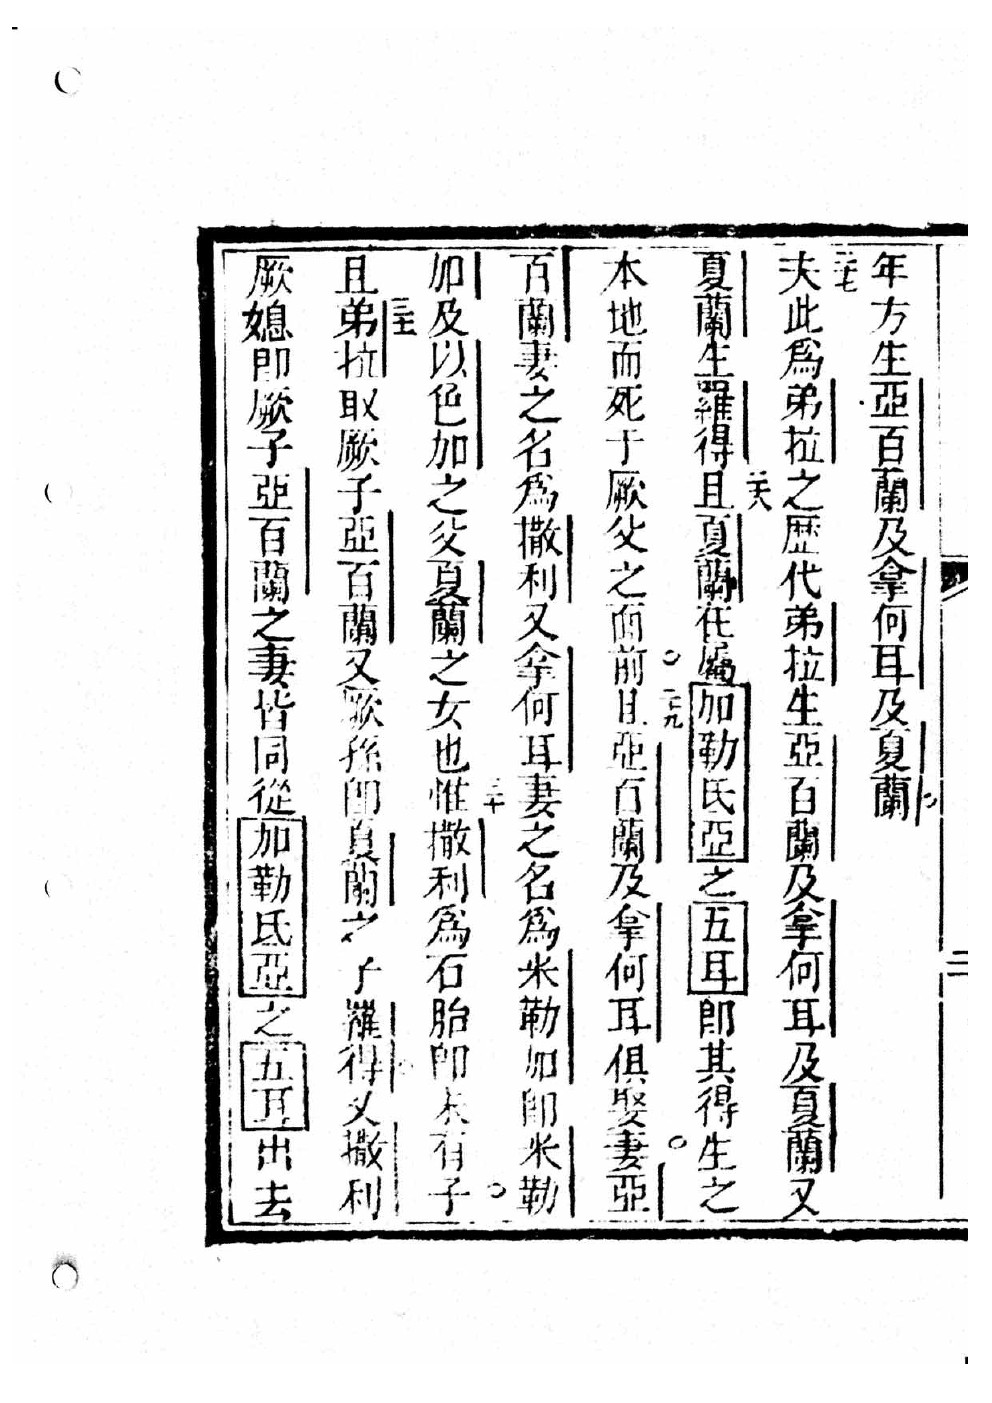 年方生亞百蘭及拿何耳及夏蘭○
二七夫此爲弟拉之歷代弟拉生亞百蘭及拿何耳及夏蘭又
夏蘭生羅得二八且夏蘭在屬加勒氐亞之五耳卽其得生之
本地而死于厥父之面前○二九且亞百蘭及拿何耳俱娶妻○亞
百蘭妻之名爲撒利又拿何耳妻之名爲米勒加卽米勒
加及以色加之父夏蘭之女也三十惟撒利爲石胎卽未有子○
且三十一弟拉取厥子亞百蘭又厥孫卽夏蘭之子羅得○又撒利
厥媳卽厥子亞百蘭之妻皆同從加勒氐亞之五耳出去
二